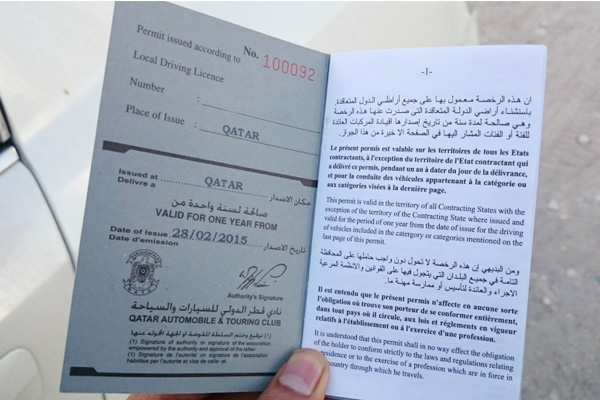 Permit issued according to
No. 100092
Local Driving Licence
Number
Place of Issue : QATAR
Issued at
Delivre a : QATAR مكان الاصدار
صالحة لسنة واحدة من
VALID FOR ONE YEAR FROM
Date of Issue
Date d'emission 28/02/2015 تاريخ الاصدار
Authority's Signature
نادي قطر الدولي للسيارات والسياحة
QATAR AUTOMOBILE & TOURING CLUB
(١) توقيع وختم السلطة المفوضة او الجهة المخولة عنها
(1) Signature of authority or signature of the association
empowered by the authority and approval of the later.
(1) Signature de l'autorité on signature de l'association
habilitee par l'autorite et visa de celle- et.
-1-
ان هذه الرخصة معمول بها على جميع أراضي الدول المتعاقدة
باستثناء أراضي الدولة المتعاقدة التي صدرت عنها هذه الرخصة
وهي صالحة لمدة سنة من تاريخ إصدارها لقيادة المركبات العائدة
للفئة أو الفئات المشار اليها في الصفحة الاخيرة من هذا الجواز.
Le présent permis est valable sur les territoires de tous les Etats
contractants, à l'exception du territoire de l'Etat contractant qui
a délivré ce permis, pendant un an à dater du jour de la délivrance,
et pour la conduite des véhicules appartenant à la catégorie ou
aux catégories visées à la deraière page.
This permit is valid in the territory of all Contracting States with the
exception of the territory of the Contracting State where issued and
valid for the period of one year from the date of issue for the driving
of vehicles included in the catergory or categories mentioned on the
last page of this permit.
ومن البديهي إن هذه الرخصة لا تحول دون واجب حاملها على المحافظة
التامة في جميع البلدان التي يتجول فيها على القوانين والانظمة المرعية
الاجراء والعائدة لتأسيس أو ممارسة مهنة ما.
Il est entendu que le présent permis n'affecte en aucune sorte
l'obligation où trouve son porteur de se conformer entièrement,
dans tout pays où il circule, aux lois et réglements en vigueur
relatifs à l'établissement ou à l'exercise d'une profession.
It is understood that this permit shall in no way effect the obligation
of the holder to conform strictly to the laws and regulations relating
residence or to the exercise of a profession which are in force in
country through which he travels.